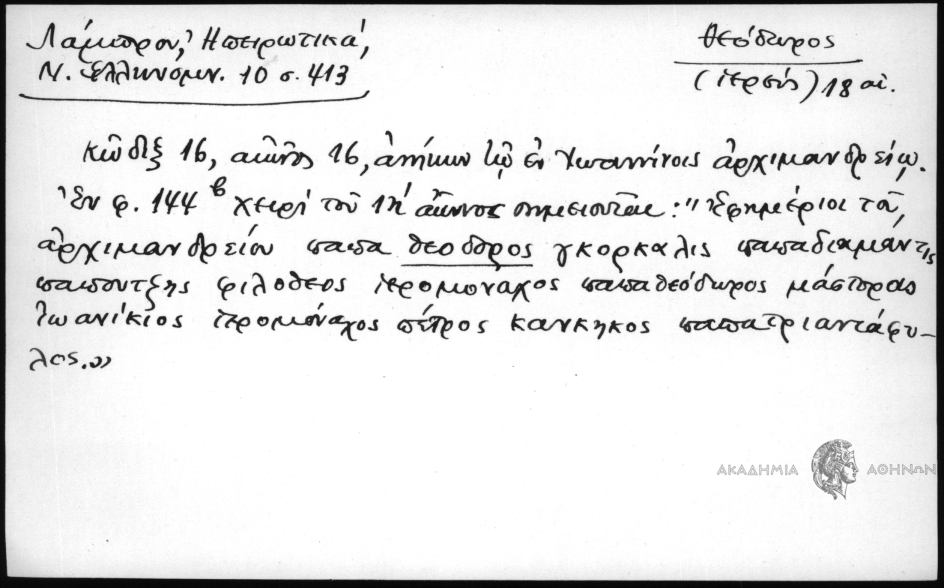 Λάμπρου, Ἠπειρωτικά,
Ν. Ἑλληνομν. 10 σ. 413
Θεόδωρος
(ἱερεύς) 18 αἰ.
Κῶδιξ 16, αἰῶνος 16, ἀνήκων τῷ ἐν Ἰωαννίνοις ἀρχιμανδρείῳ.
Ἐν φ. 144β χειρὶ τοῦ ιη' αἰῶνος σημειοῦται: "Ἐφημέριοι τοῦ
ἀρχιμανδρείου παπα θεοδορος γκορκαλις παπαδιαμάντις
παπουτζης φιλοθεος ἱερομοναχος παπαθεόδωρος μάστορας
Ἰωανίκιος ἱερομόναχος πέτρος κανκηκος παπατριαντάφυ-
λος."
ΑΚΑΔΗΜΙΑ ΑΘΗΝΩΝ